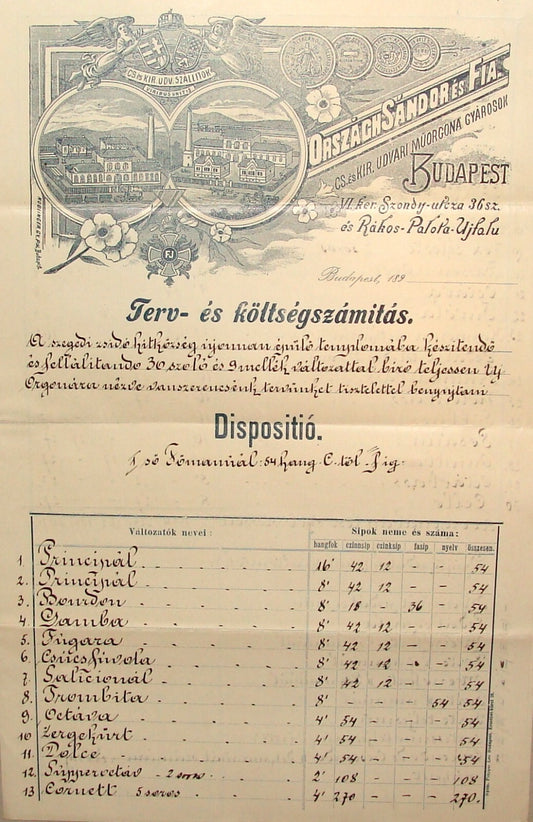 CS. ÉS KIR. UDV. SZÁLLITÓK
VIRIBUS UNITIS
ORSZÁGH SÁNDOR ÉS FIA.
CS. ÉS KIR. UDVARI MŰORGONA GYÁROSOK
BUDAPEST
VI. ker. Szondy-utcza 36 sz.
és Rákos-Palota-Ujfalu
FJ
Budapest, 189
Terv- és költségszámitás.
A szegedi zsidó hitközség ujonnan épülő templomába készitendő
és fellálitandó 30 szóló és 9 mellék változattal biró teljessen Uj
Orgonára nézve vanszerencsénk tervünket tisztelettel benyujtani
Dispositió.
I ső Főmanuál: 54 hang C. től f-ig.
Változatók nevei: Sipok neme és száma:
hangfok czinnsip czinksip fasip nyelv összesen.
1 Principál 16' 42 12 - - 54
2. Principál 8' 42 12 - - 54
3. Bourdon 8' 18 - 36 - 54
4. Gamba 8' 42 12 - - 54
5. Fugara 8' 42 12 - - 54
6. Csúcsfuvola 8' 42 12 - - 54
7. Salicionál 8' 42 12 - - 54
8. Trombita 8' - - - 54 54
9. Octáva 4' 54 - - - 54
10 Zergekürt 4' 54 - - - 54
11. Dolce 4' 54 - - - 54
12. Suppercetáv 2 soros 2' 108 - - - 108
13 Cornett 5 soros 4' 270 - - - 270.